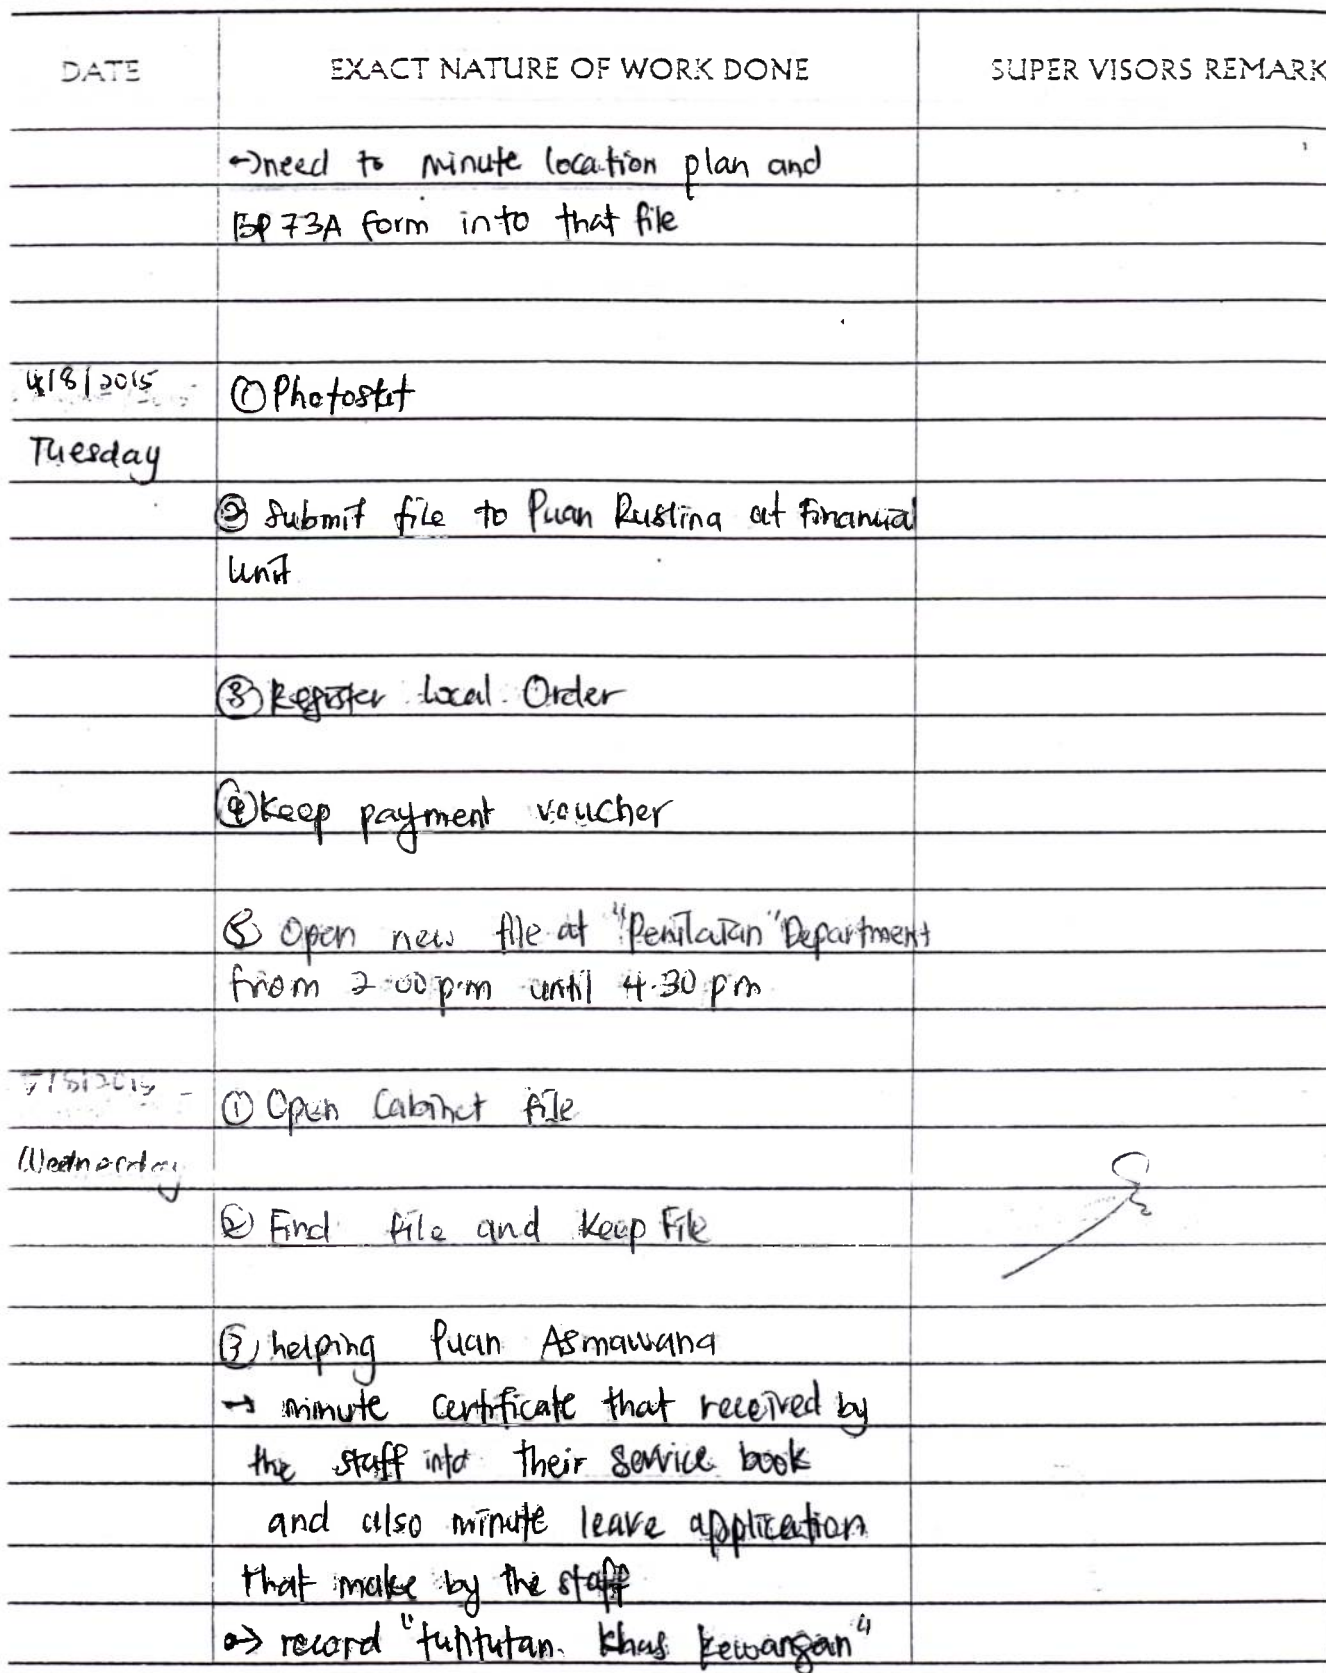 DATE EXACT NATURE OF WORK DONE SUPER VISORS REMARK
→ need to minute location plan and
BP 73A form into that file
4/8/2015 ① Photostat
Tuesday
② Submit file to Puan Ruslina at Financial
Unit
③ Register Local Order
④ Keep payment voucher
⑤ Open new file at "Penilaian" Department
from 2.00 p.m until 4.30 pm
5/8/2015 ① Open Cabinet file
Wednesday
② Find file and Keep File
③ helping Puan Asmawana
→ minute certificate that received by
the staff into their service book
and also minute leave application
that make by the staff
→ record "tuntutan khas kewangan"